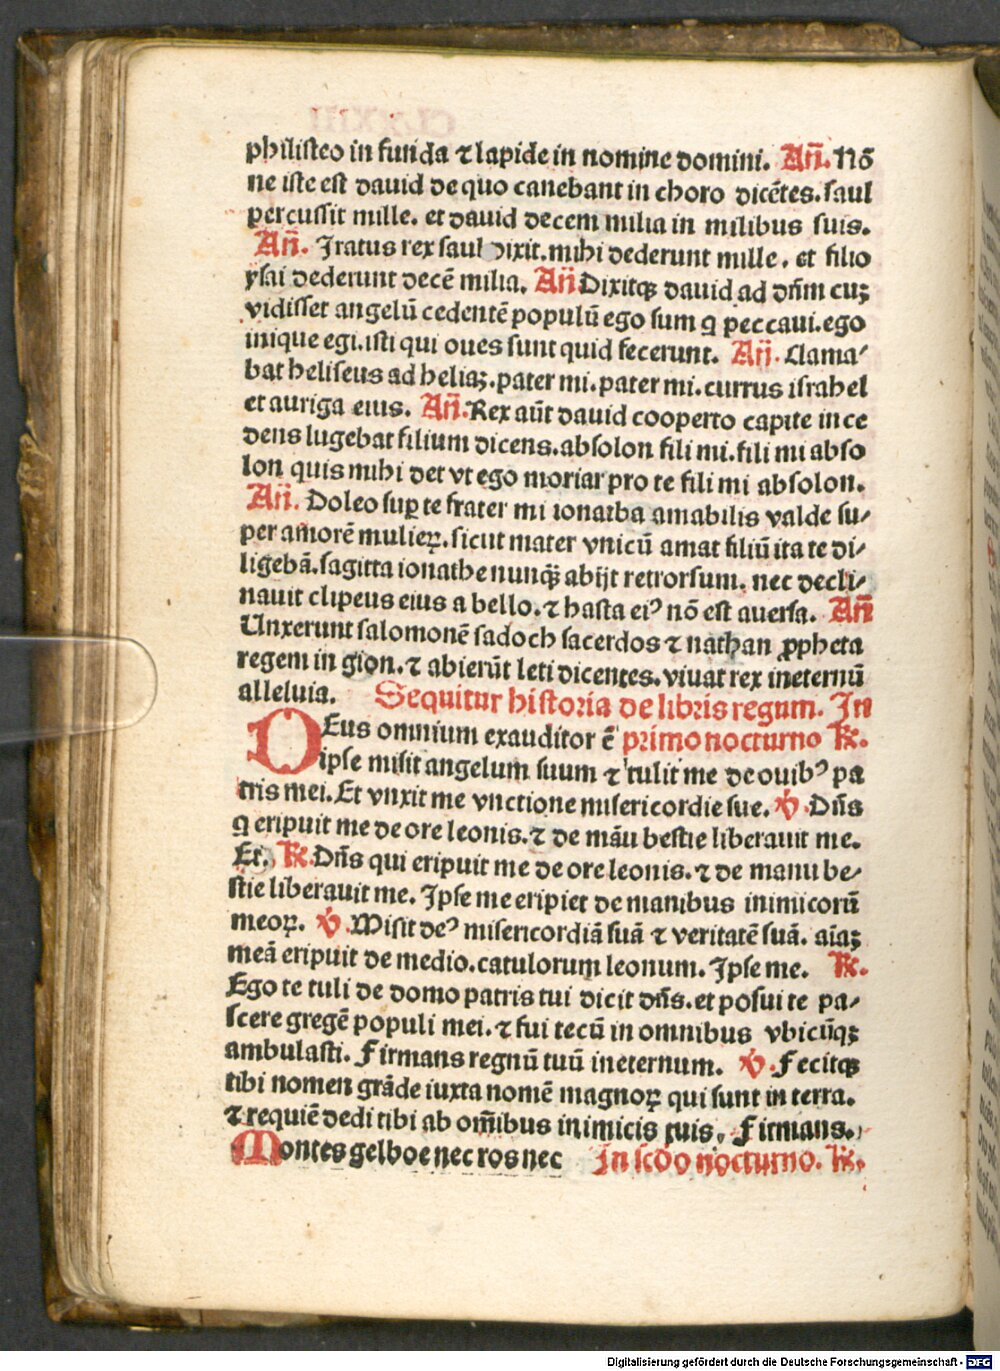 philisteo in funda ⁊ lapide in nomine domini. Añ. Nō
ne iste est dauid de quo canebant in choro dicētes. saul
percussit mille. et dauid decem milia in milibus suis.
Añ. Iratus rex saul dixit. mihi dederunt mille. et filio
ysai dederunt decē milia. Añ Dixitqꝫ dauid ad dñm cuꝫ
vidisset angelū cedentē populū ego sum q peccaui. ego
inique egi. isti qui oues sunt quid fecerunt. Añ. Clama⸗
bat heliseus ad heliaꝫ. pater mi. pater mi. currus israhel
et auriga eius. Añ. Rex aūt dauid cooperto capite ince
dens lugebat filium dicens. absolon fili mi. fili mi abso
lon quis mihi det vt ego moriar pro te fili mi absolon.
Añ. Doleo suꝑ te frater mi ionatha amabilis valde su⸗
per amorē mulieꝝ. sicut mater vnicū amat filiū ita te di⸗
ligebā. sagitta ionathe nunqꝫ̄ abijt retrorsum. nec decli⸗
nauit clipeus eius a bello. ⁊ hasta eiꝰ nō est auersa. Añ
Unxerunt salomonē sadoch sacerdos ⁊ nathan ꝓpheta
regem in gion. ⁊ abierūt leti dicentes. viuat rex ineternū
alleluia. Sequitur historia de libris regum. In
DEus omnium exauditor ē primo nocturno ℟.
ipse misit angelum suum ⁊ tulit me de ouibꝰ pa
tris mei. Et vnxit me vnctione misericordie sue. ℣. Dñs
q eripuit me de ore leonis. ⁊ de māu bestie liberauit me.
Et. ℟. Dñs qui eripuit me de ore leonis. ⁊ de manu be⸗
stie liberauit me. Ipse me eripiet de manibus inimicorū
meoꝝ. ℣. Misit deꝰ misericordiā suā ⁊ veritatē suā. aīaꝫ
meā eripuit de medio. catulorum leonum. Ipse me. ℟.
Ego te tuli de domo patris tui dicit dñs. et posui te pa⸗
scere gregē populi mei. ⁊ fui tecū in omnibus vbicūqꝫ
ambulasti. Firmans regnū tuū ineternum. ℣. Fecitqꝫ
tibi nomen grāde iuxta nomē magnoꝝ qui sunt in terra.
⁊ requiē dedi tibi ab om̄ibus inimicis tuis. Firmans.
Montes gelboe nec ros nec In scdo nocturno. ℟.
Digitalisierung gefördert durch die Deutsche Forschungsgemeinschaft - DFG